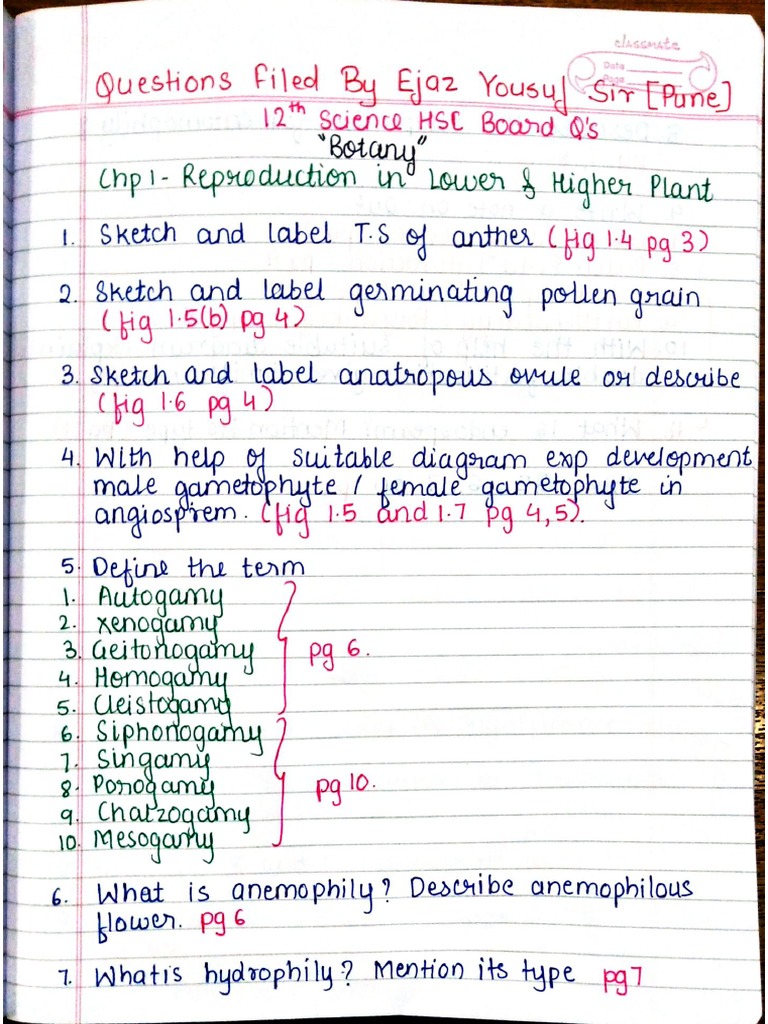 classmate
Date
Page
Questions Filed By Ejaz Yousuf Sir [Pune]
12th Science HSC Board Q's
"Botany"
Chp 1 - Reproduction in Lower & Higher Plant
1. Sketch and label T.S of anther (fig 1.4 pg 3)
2. Sketch and label germinating pollen grain
(fig 1.5(b) pg 4)
3. Sketch and label anatropous ovule or describe
(fig 1.6 pg 4)
4. With help of suitable diagram exp development
male gametophyte / female gametophyte in
angiospirem. (fig 1.5 and 1.7 pg 4,5).
5. Define the term
1. Autogamy
2. Xenogamy
3. Geitonogamy pg 6.
4. Homogamy
5. Cleistogamy
6. Siphonogamy
7. Singamy
8. Porogamy pg 10.
9. Chalzogamy
10. Mesogamy
6. What is anemophily? Describe anemophilous
flower. pg 6
7. What is hydrophily? Mention its type pg 7